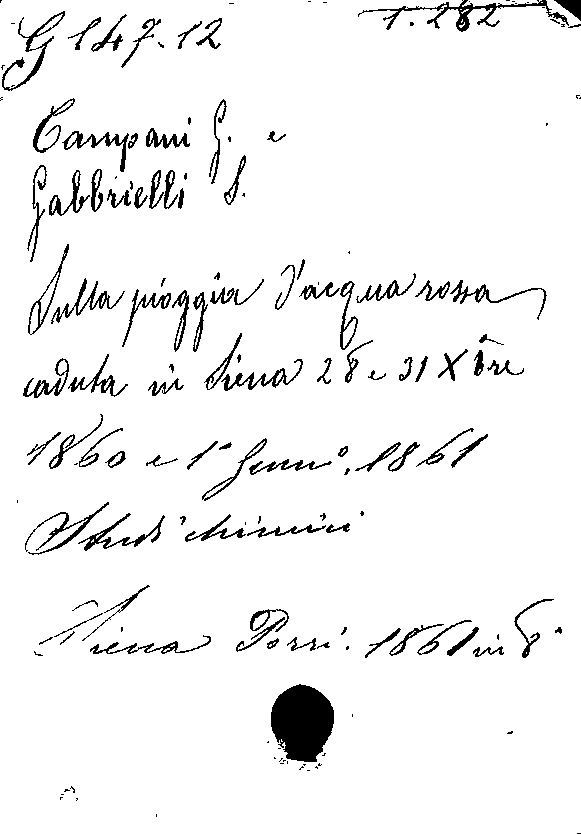 G 147.12
1.282
Campani G. e
Gabbrielli S.
Sulla pioggia d'acqua rossa
caduta in Siena 28 e 31 Xbre
1860 e 1° Genn°. 1861
Studi chimici
Siena Porri. 1861 in 8°